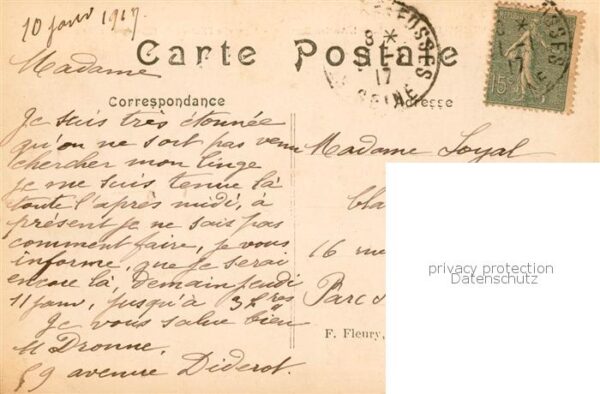 10 janv 1917
Carte Postale
Madame
Correspondance
Adresse
Je suis très étonnée
qu'on ne soit pas venu
chercher mon linge
je me suis tenue là
toute l'après midi, à
présent je ne sais pas
comment faire, je vous
informe, que je serai
encore là, demain jeudi
11 janv, jusqu'à 3 hres
Je vous salue bien
M Dronne,
59 avenue Diderot.
Madame Loyal
bla
16 rue
Parc
F. Fleury,
8 *
17
SEINE
15c
privacy protection
Datenschutz